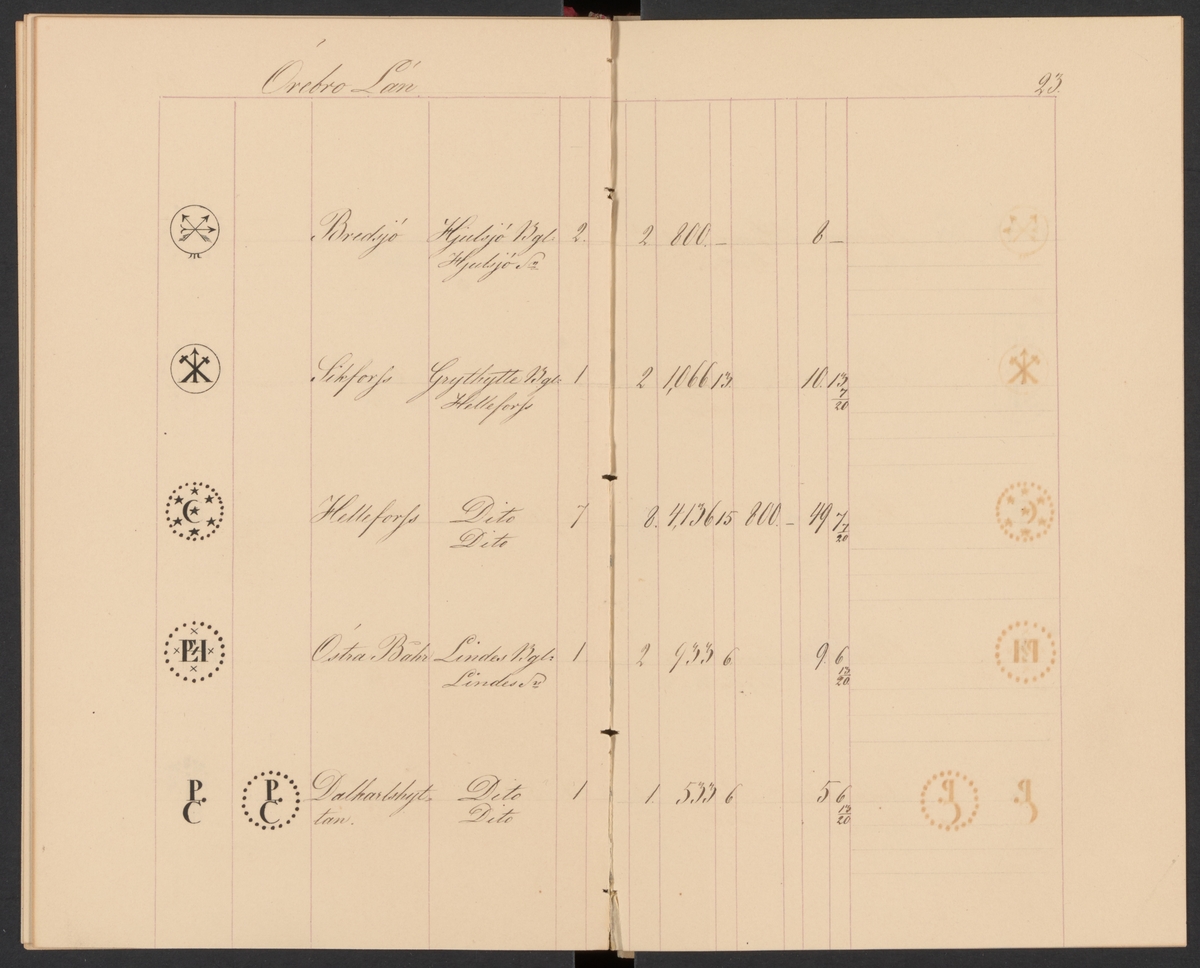 Örebro Län 23.
Bredsjö Hjulsjö Bgl. 2. 2 800 — 8 —
Hjulsjö Sn
Sikforss Grythytte Bgl. 1 2 1,066 13. 10. 13 7/20
Helleforss
C Helleforss Dito 7 8. 4,136 15 800. — 49 7 7/20
Dito
Östra Bohr Lindes Bgl. 1 2 933 6 9. 6 13/20
Lindes Sn
P. C P. C Dalkarlshyt- Dito 1 1. 533 6 5 6 13/20
tan. Dito